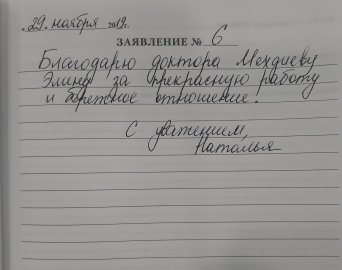 29. ноября 2019г.
ЗАЯВЛЕНИЕ № 6
Благодарю доктора Мехдиеву
Элину за прекрасную работу
и бережное отношение.
С уважением,
Наталья